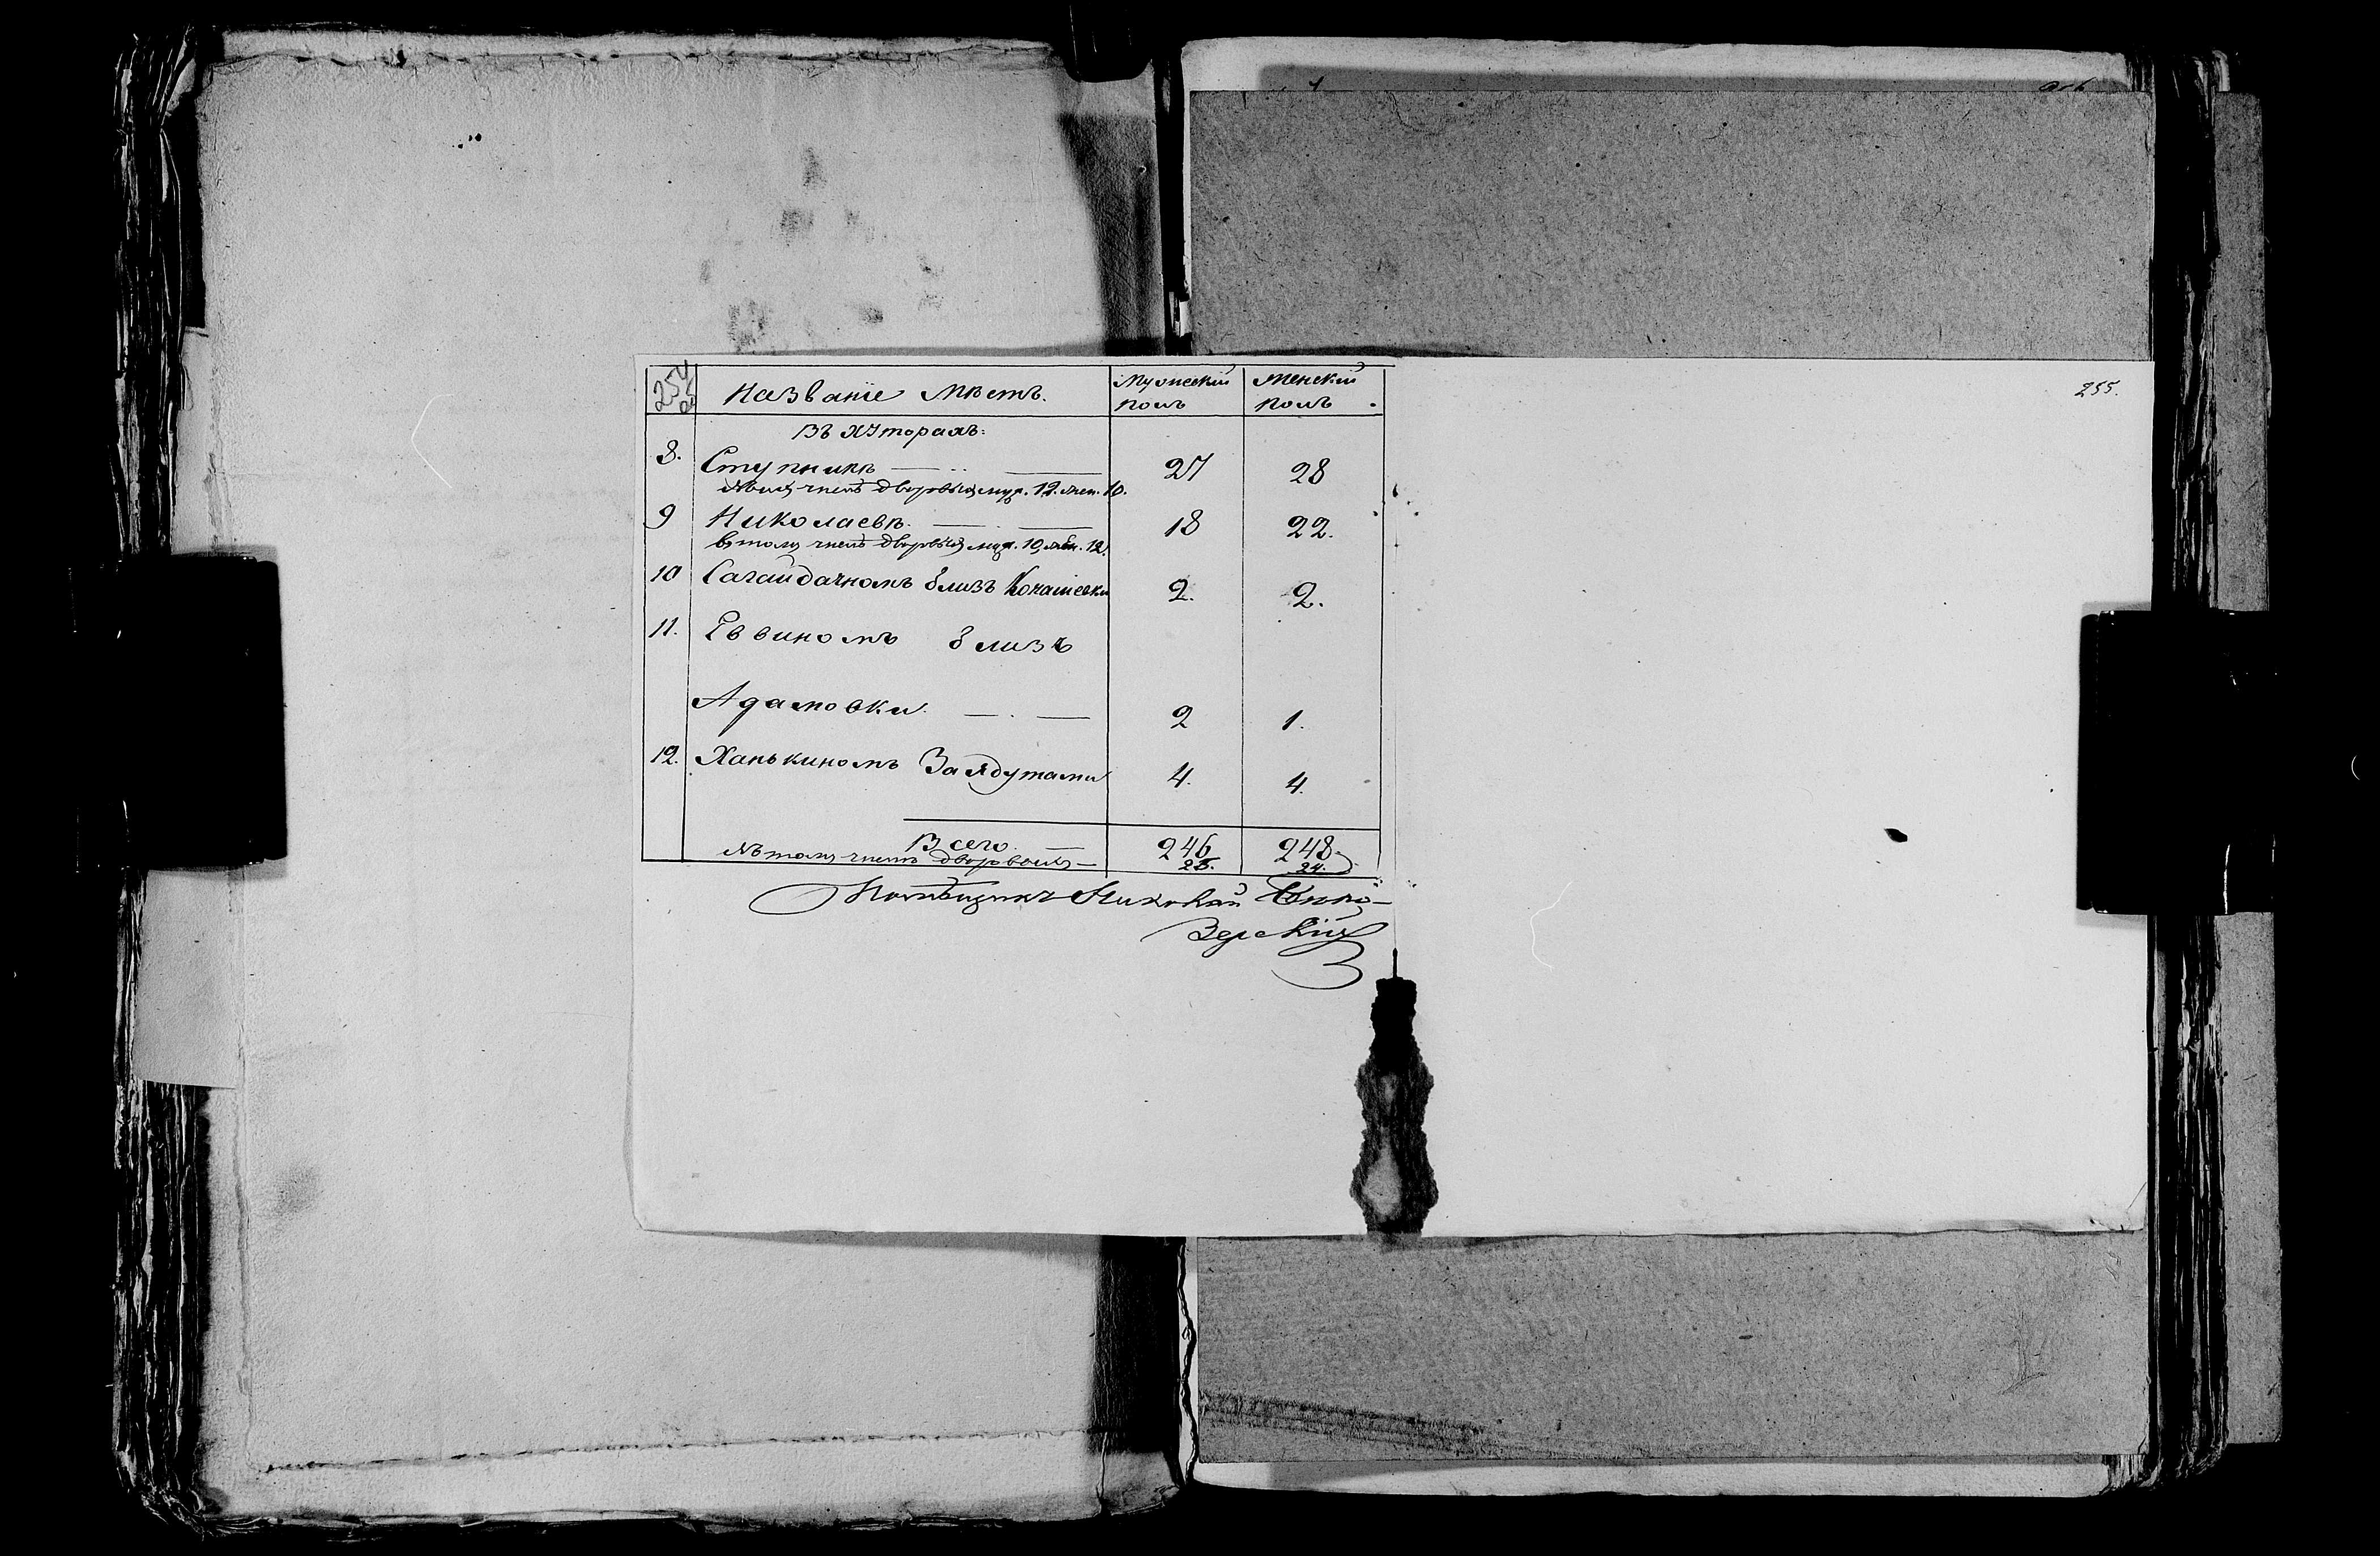 254
об
Названiе Мѣстъ.
Мужескiй
полъ
Женскiй
полъ
Въ Хуторахъ:
8. Ступникѣ 27 28
в томъ числѣ дворовыхъ муж. 12. жен. 10.
9 Николаевкѣ. 18 22.
в томъ числѣ дворовыхъ муж. 10, жен. 12.
10 Сагайдачномъ близъ Кочашевки 2. 2.
11. Еввиномъ близъ
Адамовки. 2 1.
12. Ханькиномъ За Ядутами 4. 4.
Всего. 246 248.
в томъ числѣ дворовыхъ 24.
Помѣщикъ Николай
Зерскiй
255.